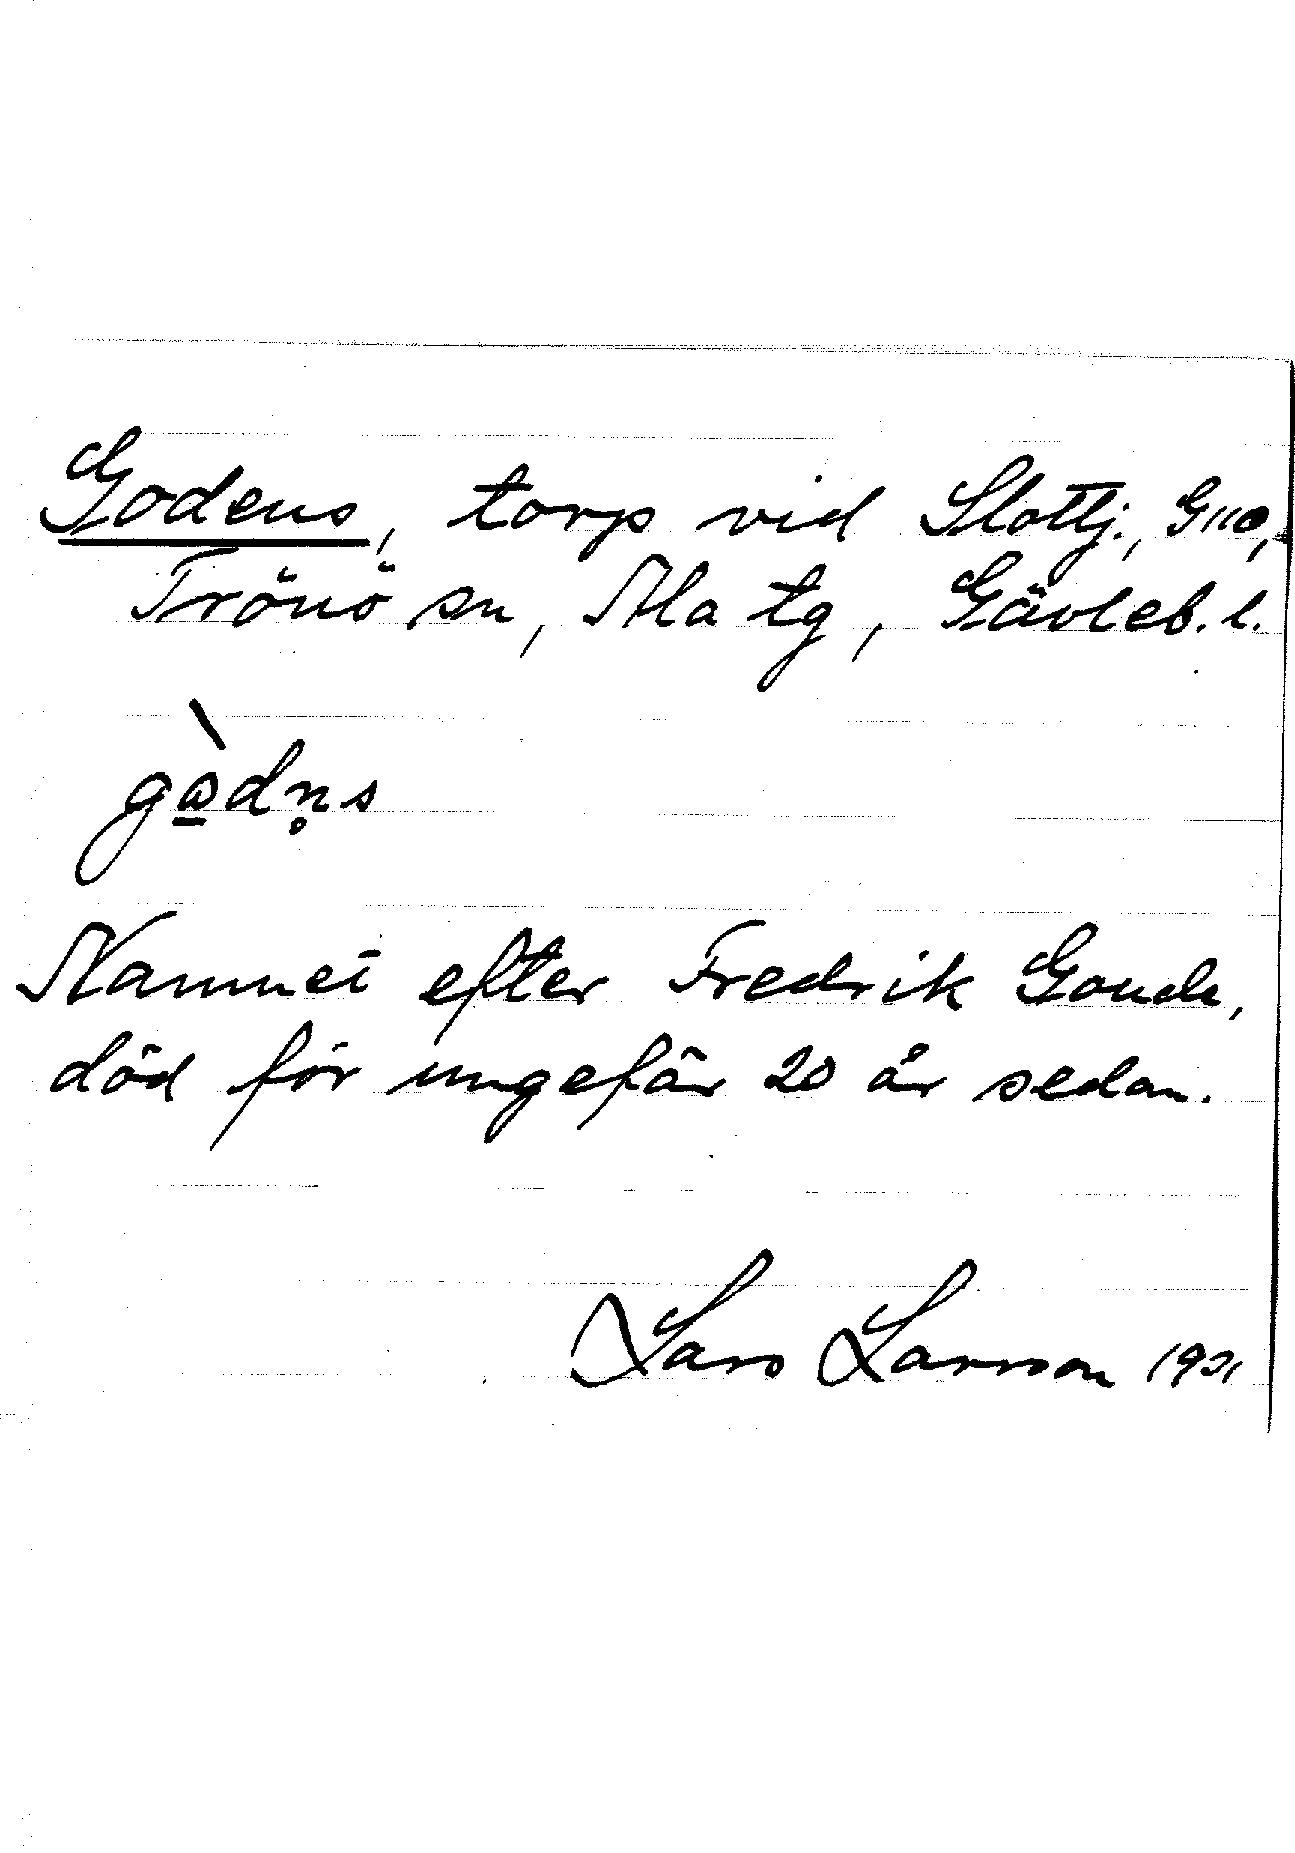 Godens, torp vid Slottj., G110,
Trönö sn, Ala tg, Gävleb. l.
gòdn̥s
Namnet efter Fredrik Goude,
död för ungefär 20 år sedan.
Lars Larsson 1921